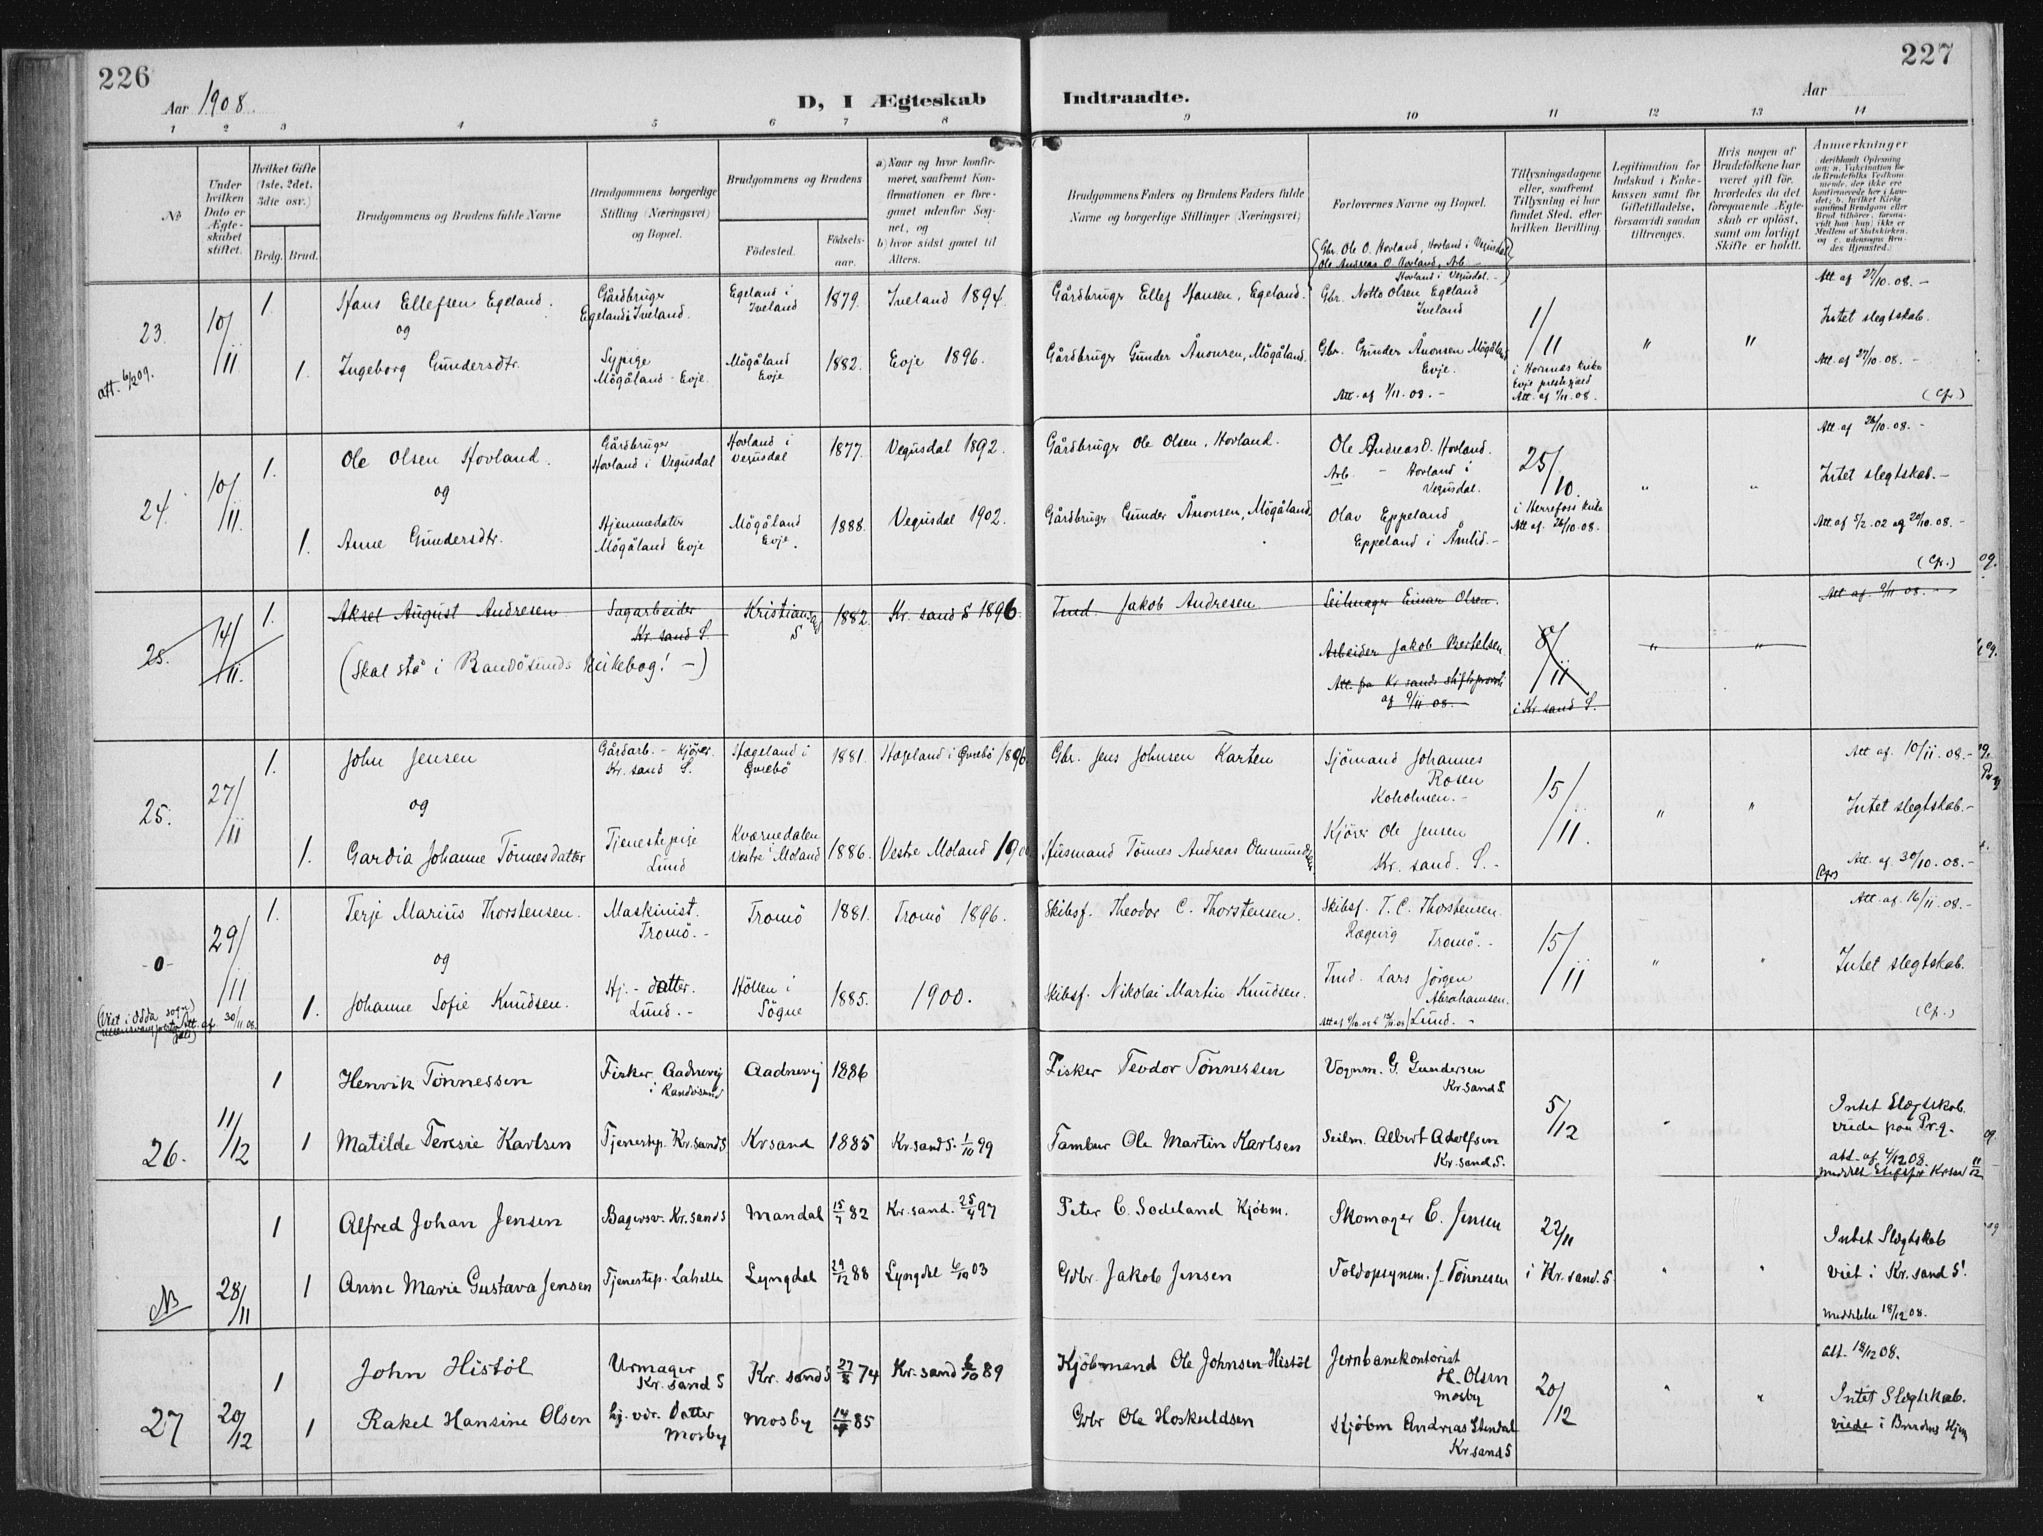 226
Aar 1908.
D, I Ægteskab
Indtraadte.
Aar
227
1 2 3 4 5 6 7 8 9 10 11 12 13 14
No
Under hvilken Dato er Ægteskabet stiftet.
Hvilket Gifte (1ste, 2det, 3dte osv.)
Brdg. Brud.
Brudgommens og Brudens fulde Navne
Brudgommens borgerlige Stilling (Næringsvei) og Bopæl.
Brudgommens og Brudens
Fødested.
Fødselsaar.
a) Naar og hvor konfirmeret, saafremt Konfirmationen er foregaaet udenfor Sognet, og
b) hvor sidst gaaet til Alters.
Brudgommens Faders og Brudens Faders fulde Navne og borgerlige Stillinger (Næringsvei)
Forlovernes Navne og Bopæl.
Tillysningsdagene eller, saafremt Tillysning ei har fundet Sted, efter hvilken Bevilling.
Legitimation for Indskud i Enkekassen samt for Giftetilladelse, forsaavidt saadan tiltrænges.
Hvis nogen af Brudefolkene har været gift før, hvorledes da det foregaaende Ægteskab er opløst, samt om lovligt Skifte er holdt.
Anmerkninger
Gbr. Ole O. Hovland, Hovland i Vegusdal
Ole Andreas O. Hovland, Arb. -
Hovland i Vegusdal. -
23.
att. 6/2 09.
10/11
1.
Hans Ellefsen Egeland.
og
Gårdbruger
Egeland i Iveland.
Egeland i Iveland
1879.
Iveland 1894.
Gårdbruger Ellef Hansen, Egeland.
Gbr. Notto Olsen Egeland
Iveland
1/11
i Hornnes kirke
Evje prestegjeld
Att. af 1/11. 08.
" "
Att. af 27/10. 08. -
Intet slegtskab.
1.
Ingeborg Gundersdtr.
Sypige
Mögåland - Evje.
Mögåland
Evje
1882.
Evje 1896.
Gårdbruger Gunder Ånonsen, Mögåland.
Gbr. Gunder Ånonsen Mögåland
Evje.
Att. af 1/11. 08. -
Att. af 27/10. 08. -
24.
10/11.
1.
Ole Olsen Hovland.
og
Gårdbruger
Hovland i Vegusdal
Hovland i
Vegusdal
1877.
Vegusdal 1892.
Gårdbruger Ole Olsen, Hovland.
Ole Andreas O. Hovland.
Arb. - Hovland i
Vegusdal.
25/10.
i Herrefoss kirke
Att. af 26/10. 08.
" "
Att. af 26/10. 08. -
Intet slegtskab. -
1.
Anne Gundersdtr.
Hjemmedatter
Mögåland Evje
Mögåland
Evje.
1888.
Vegusdal 1902.
Gårdbruger Gunder Ånonsen, Mögåland.
Olav Eppeland
Eppeland i Åmlid. -
Att. af 5/2. 02 og 20/10. 08. -
25.
14/11.
1.
Aksel August Andresen
Sagarbeider
Kr. sand S.
Kristiansand
S
1882.
Kr. sand S 1896.
Tmd. Jakob Andresen.
Seilmager Einar Olsen.
Arbeider Jakob Bertelsen
Att. fra Kr sands stiftsprovsti
af 9/11 08.
8/11
i Kr. sand S.
" "
Att. af 9/11 08. -
(Skal stå i Randösunds kirkebog! -)
25.
27/11
1.
John Jensen
og
Gårdarb. - Kjører.
Kr. sand S.
Hægeland i
Øvrebö
1881.
Hægeland i Øvrebö 1896
Gbr. Jens Johnsen Karten
Sjömand Johannes
Rosen
Koholmen. -
15/11.
" "
Att. af 10/11. 08. -
Intet slegtskab. -
1.
Gardia Johanne Tönnesdatter
Tjenestepige
Lund
Kværnedalen
Vestre Moland
1886.
Vestre Moland 1900
Husmand Tönnes Andreas Ommundsen
Kjörer Ole Jensen
Kr. sand. S. -
Att. af 30/10. 08. -
-0-
29/11
1.
Terje Marius Thorstensen.
og
Maskinist.
Tromö. -
Tromö
1881.
Tromö 1896.
Skibsf. Theodor C. Thorstensen.
Skibsf. T. C. Thorstensen.
Rægevig Tromö. -
15/11
" "
Att. af. 16/11. 08. -
Intet slegtskab.
1.
Johanne Sofie Knudsen.
Hj. - datter.
Lund. -
Höllen i
Sögne
1885.
1900.
Skibsf. Nikolai Martin Knudsen.
Tmd. Lars Jörgen
Abrahamsen.
Lund. -
(Viet i Odda sogn
Att. af 30/11 08.
26.
11/12
1
Henrik Tönnessen
Fisker Aadnevig
i Randösund
Aadnevig
1886
Fisker Teodor Tönnessen
Vognm. G. Gundersen
Kr.sand S.
5/12
"
Intet Slægtskab.
viede paa Pr.g.
1
Matilde Teresie Karlsen
Tjenestep. Kr.sand S
Kr sand
1885
Kr.sand S. 1/10 99
Tambur Ole Martin Karlsen
Seilm. Albert Adolfsen
Kr.sand S.
att. af 4/12 08.
NB
28/11
1
Alfred Johan Jensen
Bagersv. Kr.sand S
Mandal
15/7 82
Kr. sand. 25/4 97
Peter C. Sodeland Kjöbm.
Skomager C. Jensen
22/11
i Kr. sand. S
Intet Slægtskab
viet i Kr. sand S!
1
Anne Marie Gustava Jensen
Tjenestep. Lahelle
Lyngdal
29/12 88
Lyngdal 6/10 03
Gdbr. Jakob Jensen
Toldopsynsm. J. Tönnesen
Meddelelse 18/12 08.
27
20/12
1
John Histöl
Urmager
Kr. sand S
Kr. sand S
27/8 74
Kr. sand 6/10 89
Kjöbmand Ole Johnsen Histöl
Jernbanekontorist
H. Olsen
Mosby
20/12
att. 18/12 08.
Intet Slægtskab.
viede i Brudens Hjem
1
Rakel Hansine Olsen
hj. vær. Datter
Mosby
Mosby
85
Gdbr Ole Hoskuldsen
Kjöbm Andreas Stendal
Kr sand S